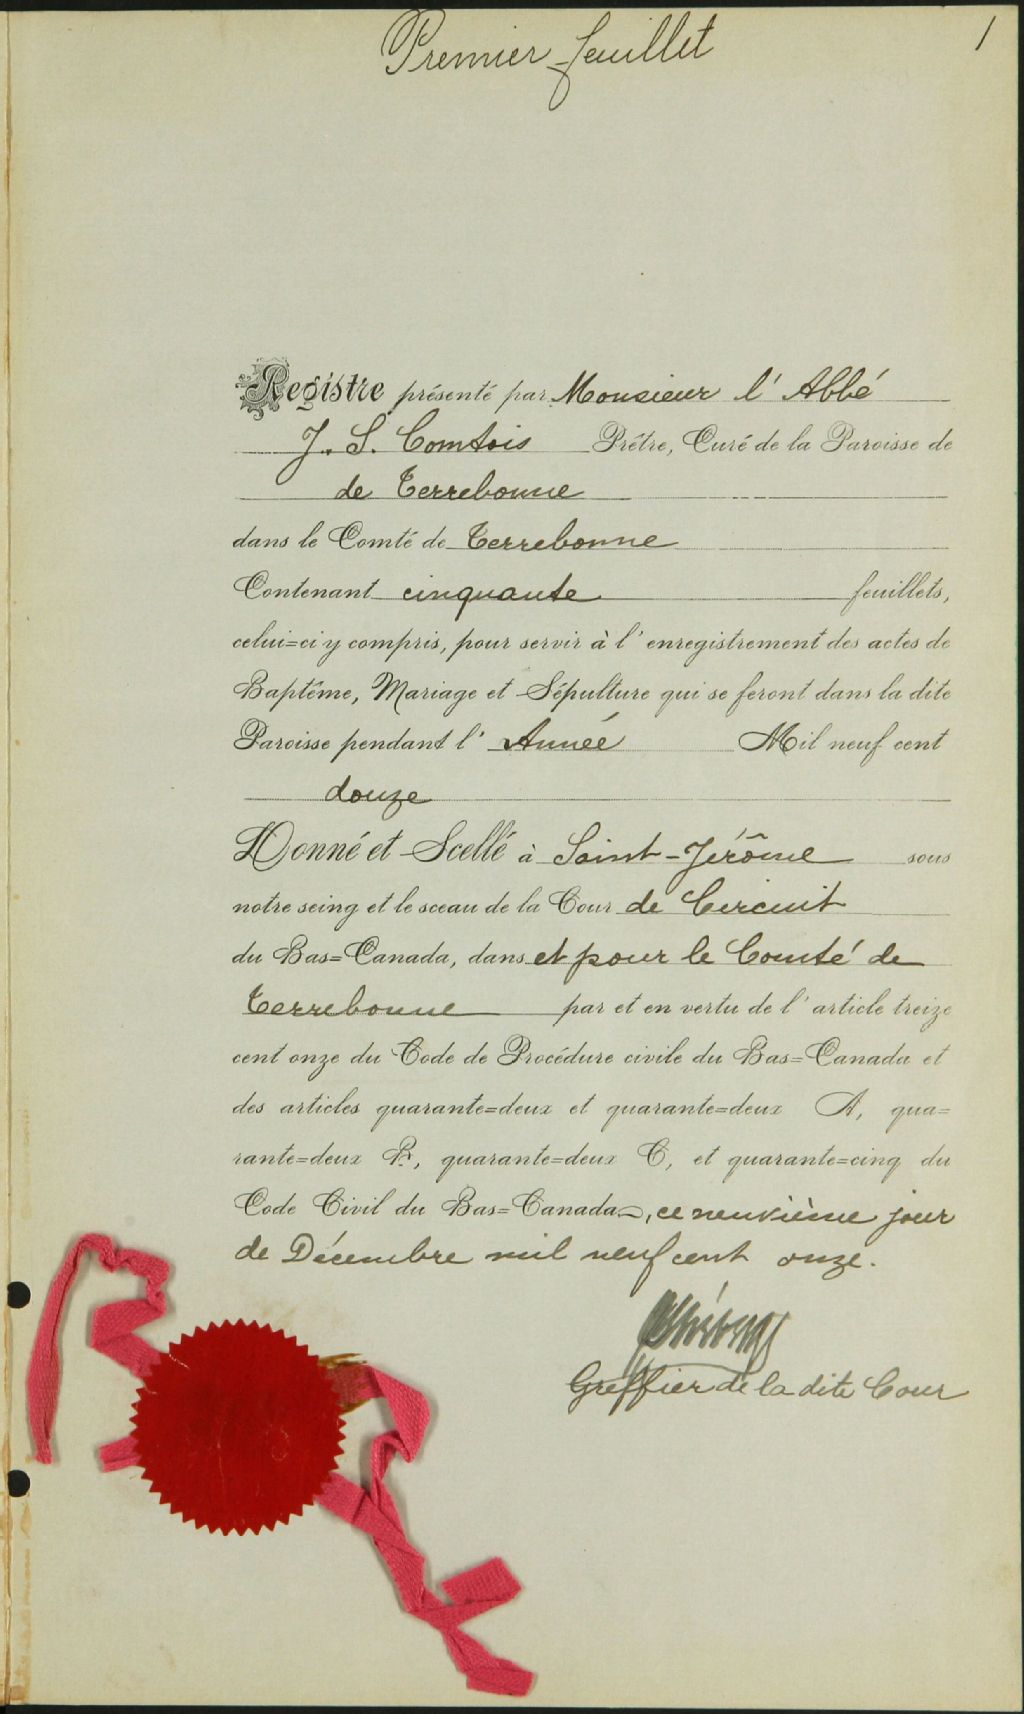 Premier feuillet
1
Registre présenté par Monsieur l'Abbé
J. S. Comtois Prêtre, Curé de la Paroisse de
de Terrebonne
dans le Comté de Terrebonne
Contenant cinquante feuillets,
celui=ci y compris, pour servir à l'enregistrement des actes de
Baptême, Mariage et Sépulture qui se feront dans la dite
Paroisse pendant l' Année Mil neuf cent
douze
Donné et Scellé à Saint-Jérôme sous
notre seing et le sceau de la Cour de Circuit
du Bas=Canada, dans et pour le Comté de
Terrebonne par et en vertu de l'article treize
cent onze du Code de Procédure civile du Bas=Canada et
des articles quarante=deux et quarante=deux A, qua=
rante=deux B, quarante=deux C, et quarante=cinq du
Code Civil du Bas=Canada, ce neuvième jour
de Décembre mil neuf cent onze.
Greffier de la dite Cour